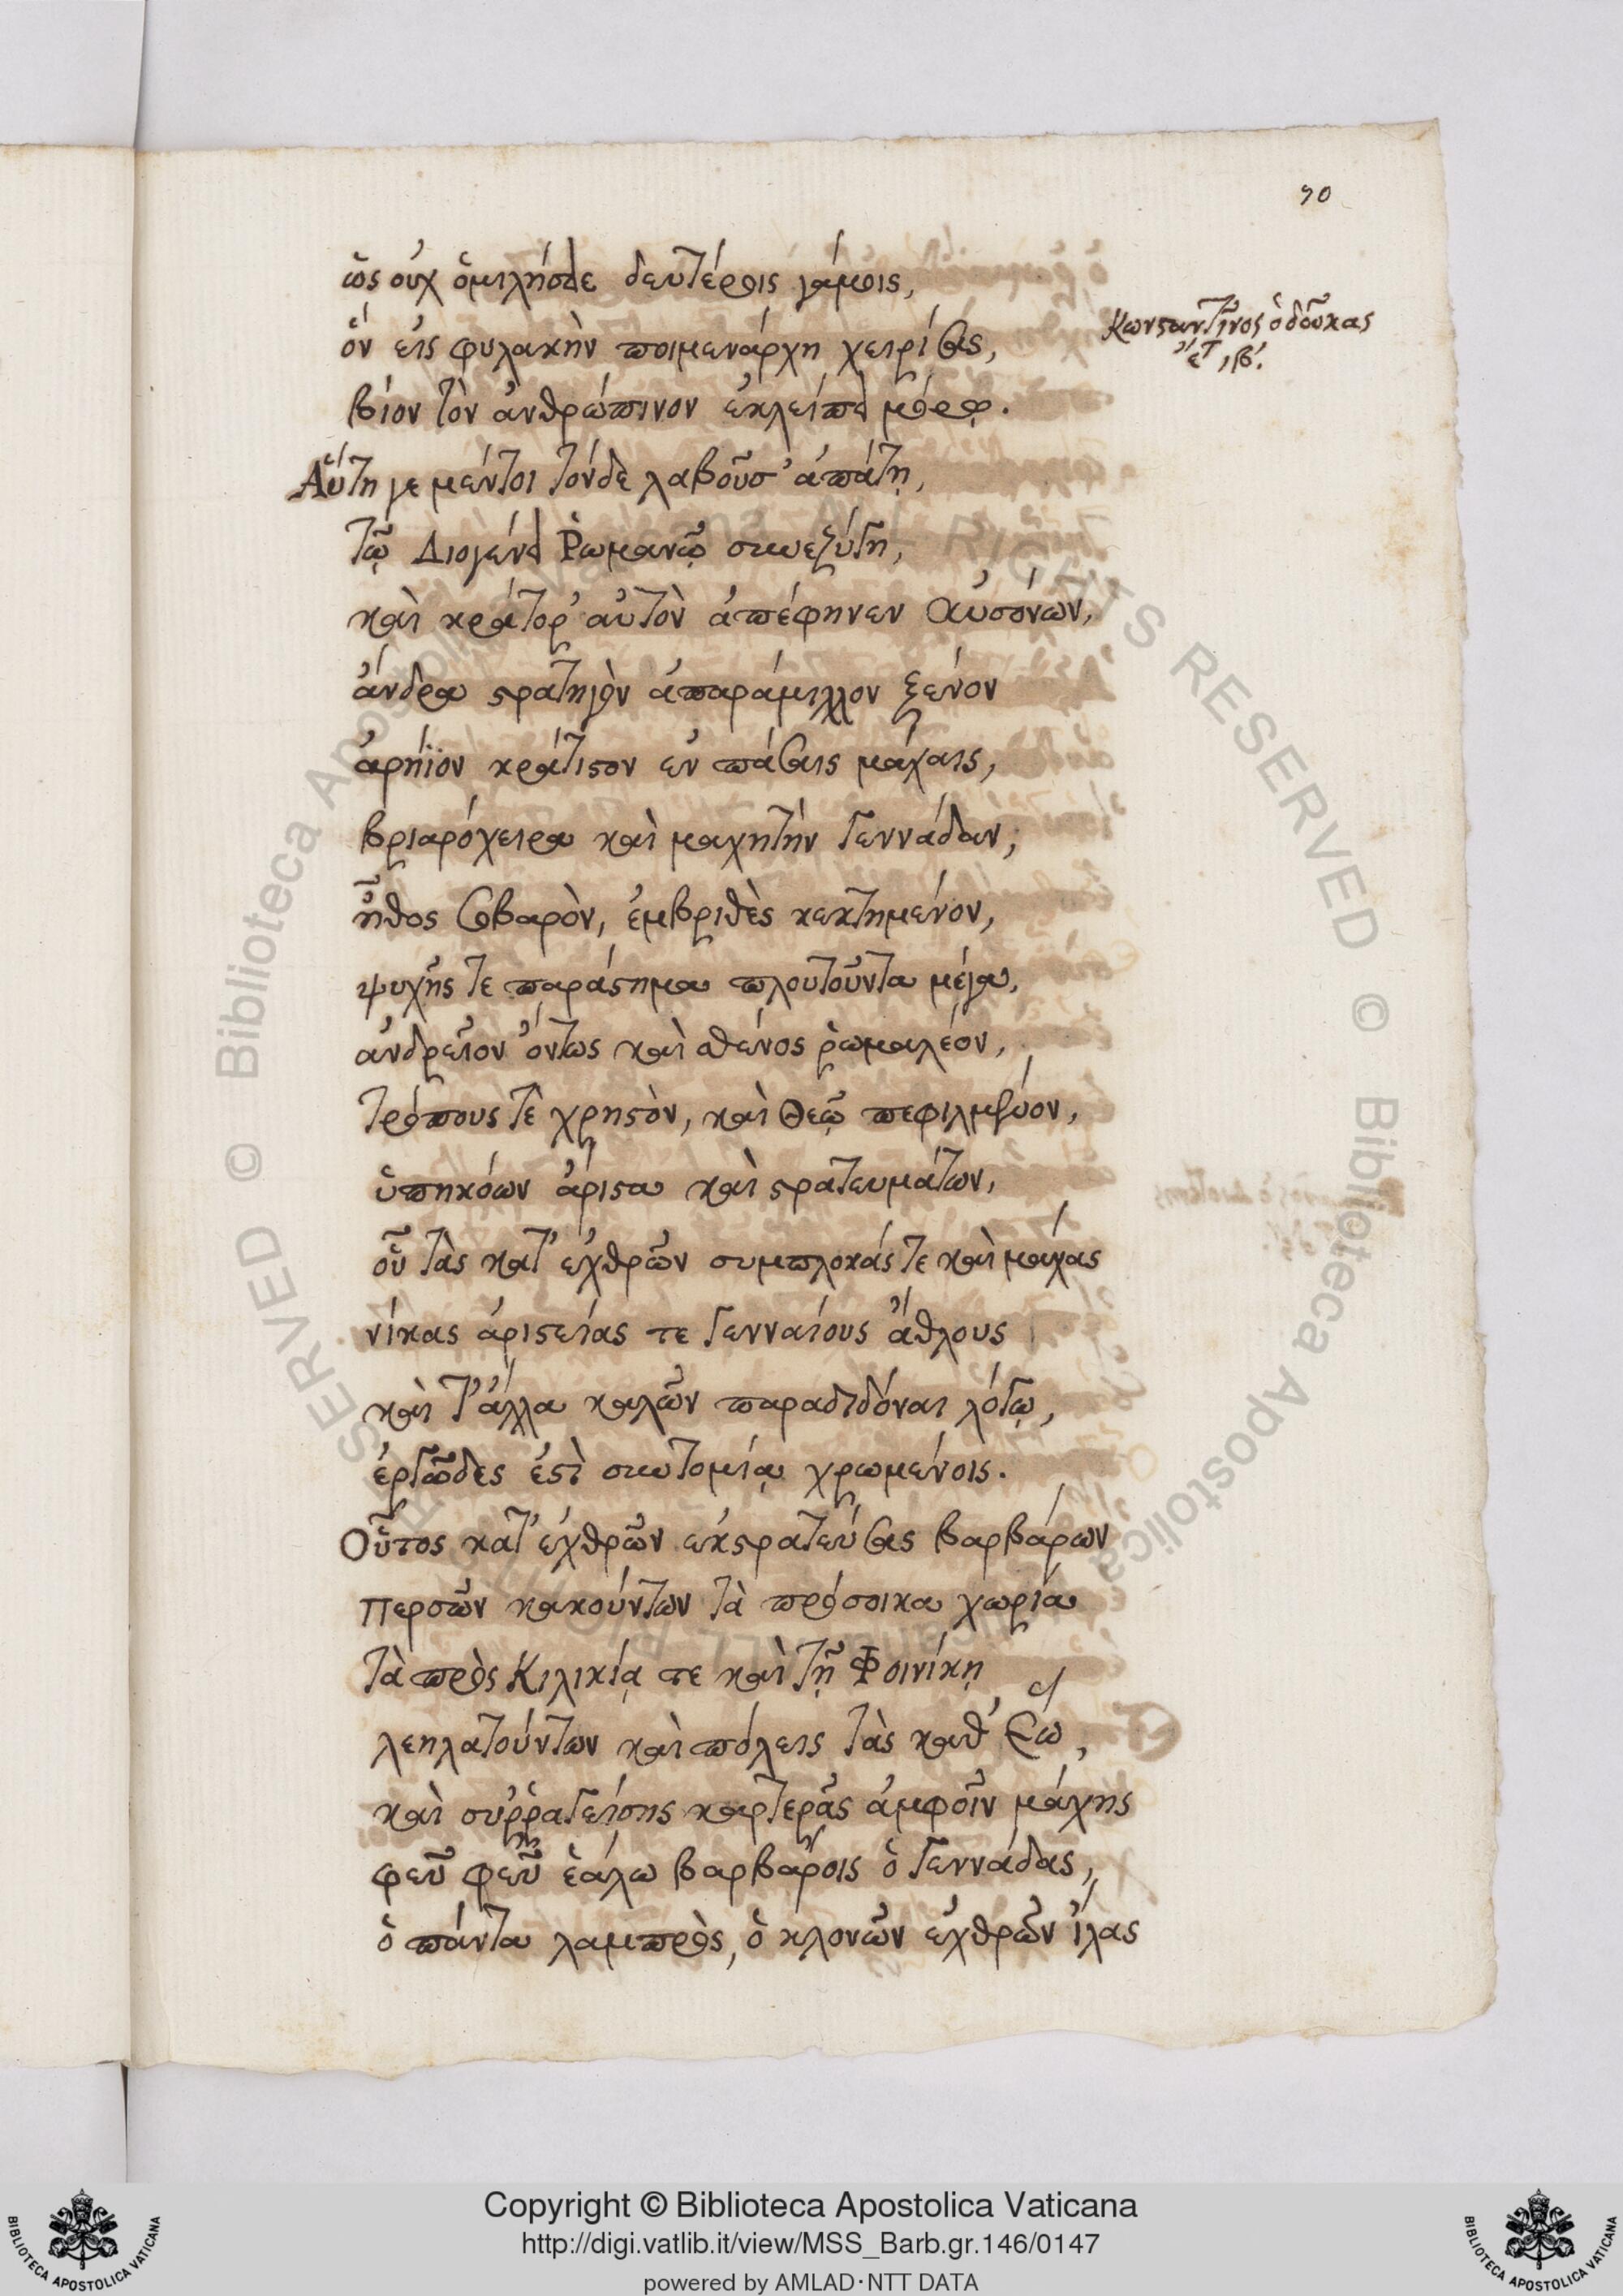 70
ὡς οὐχ ὁμιλήσειε δευτέροις γάμοις,
Κωνσταντῖνος ὁ δοῦκας
ἔτ, ιβ'.
ὃν εἰς φυλακὴν ποιμενάρχη χειρίσας,
βίον τὸν ἀνθρώπινον ἐκλείπει μόρῳ.
Αὕτη γε μέντοι τόνδε λαβοῦσ' ἀπάτῃ,
τῷ Διογένει Ῥωμανῷ συνεζύγη,
καὶ κράτορ' αὐτὸν ἀπέφηνεν Αὐσόνων,
ἄνδρα στρατηγὸν ἀπαράμιλλον ξένον
ἀρήϊον κράτιστον ἐν πάσαις μάχαις,
βριαρόχειρα καὶ μαχητὴν γεννάδαν,
ἦθος σοβαρὸν, ἐμβριθὲς κεκτημένον,
ψυχῆς τε παράστημα πλουτοῦντα μέγα,
ἀνδρεῖον ὄντως καὶ σθένος ῥωμαλέον,
τρόπους τὲ χρηστὸν, καὶ Θεῷ πεφιλμένον,
ὑπηκόων ἄριστα καὶ στρατευμάτων,
οὗ τὰς κατ' ἐχθρῶν συμπλοκάς τε καὶ μάχας
νίκας ἀριστείας τε γενναίους ἄθλους
καὶ τ' ἄλλα καλῶν παραδιδόναι λόγῳ,
ἐργῶδες ἐστὶ συντομίᾳ χρωμένοις.
Οὗτος κατ' ἐχθρῶν ἐκστρατεύσας βαρβάρων
Περσῶν κακούντων τὰ πρόσοικα χωρία
τὰ πρὸς Κιλικίᾳ τε καὶ τῇ Φοινίκῃ
λεηλατούντων καὶ πόλεις τὰς καθ' Ἕω,
καὶ συῤῥαγείσης καρτερᾶς ἀμφοῖν μάχης
φεῦ φεῦ ἑάλω βαρβάροις ὁ γεννάδας,
ὁ πάντα λαμπρὸς, ὁ κλονῶν ἐχθρῶν ἴλας
Copyright © Biblioteca Apostolica Vaticana
http://digi.vatlib.it/view/MSS_Barb.gr.146/0147
powered by AMLAD·NTT DATA
BIBLIOTECA APOSTOLICA VATICANA
BIBLIOTECA APOSTOLICA VATICANA